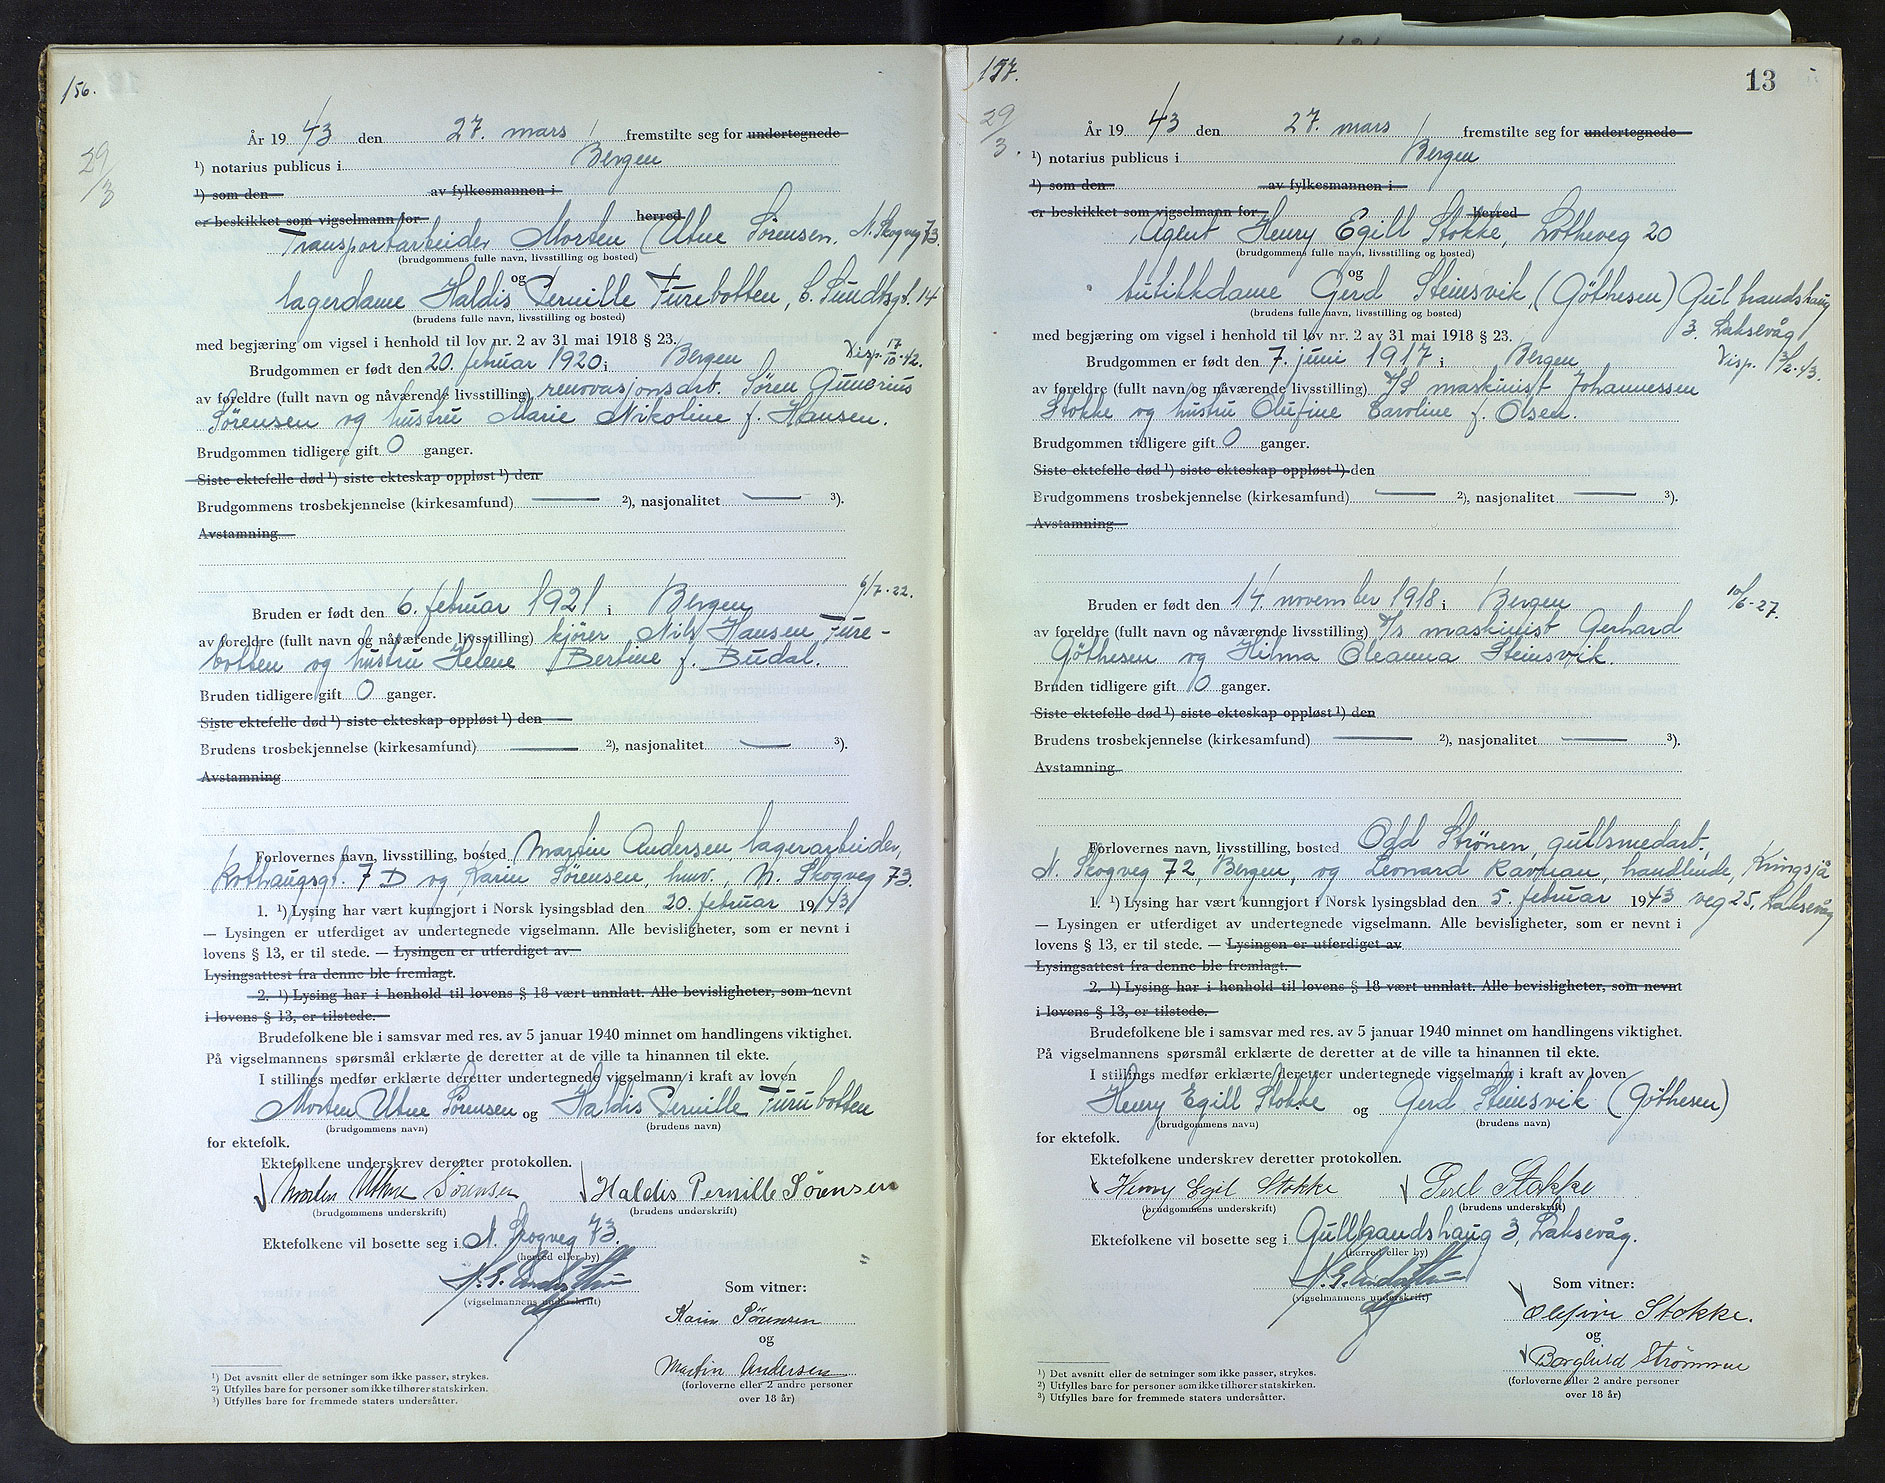 156.
29/3
År 1943 den 27. mars fremstilte seg for undertegnede
¹) notarius publicus i Bergen
¹) som den av fylkesmannen i
er beskikket som vigselmann for herred
Transportarbeider Morten Utne Sørensen, N. Skogveg 73.
(brudgommens fulle navn, livsstilling og bosted)
og
lagerdame Haldis Pernille Furebotten, C. Sundtsgt. 14
(brudens fulle navn, livsstilling og bosted)
med begjæring om vigsel i henhold til lov nr. 2 av 31 mai 1918 § 23.
Disp. 17/10-42.
Brudgommen er født den 20. februar 1920 i Bergen
av foreldre (fullt navn og nåværende livsstilling) renovasjonsarb. Søren Gunerius
Sørensen og hustru Marie Nikoline f. Hansen.
Brudgommen tidligere gift 0 ganger.
Siste ektefelle død ¹) siste ekteskap oppløst ¹) den
Brudgommens trosbekjennelse (kirkesamfund) ²), nasjonalitet ³).
Avstamning
6/7-22.
Bruden er født den 6. februar 1921 i Bergen
av foreldre (fullt navn og nåværende livsstilling) kjører Nils Hansen Fure-
botten og hustru Helene Bertine f. Budal.
Bruden tidligere gift 0 ganger.
Siste ektefelle død ¹) siste ekteskap oppløst ¹) den
Brudens trosbekjennelse (kirkesamfund) ²), nasjonalitet ³).
Avstamning
Forlovernes navn, livsstilling, bosted Martin Andersen, lagerarbeider,
Rothaugsgt. 7 D og Karin Sørensen, husv., N. Skogveg 73.
1. ¹) Lysing har vært kunngjort i Norsk lysingsblad den 20. februar 1943
— Lysingen er utferdiget av undertegnede vigselmann. Alle bevisligheter, som er nevnt i
lovens § 13, er til stede. — Lysingen er utferdiget av
Lysingsattest fra denne ble fremlagt.
2. ¹) Lysing har i henhold til lovens § 18 vært unnlatt. Alle bevisligheter, som nevnt
i lovens § 13, er tilstede.
Brudefolkene ble i samsvar med res. av 5 januar 1940 minnet om handlingens viktighet.
På vigselmannens spørsmål erklærte de deretter at de ville ta hinannen til ekte.
I stillings medfør erklærte deretter undertegnede vigselmann i kraft av loven
Morten Utne Sørensen og Haldis Pernille Furubotten
(brudgommens navn) (brudens navn)
for ektefolk.
Ektefolkene underskrev deretter protokollen.
Morten Utne Sørensen Haldis Pernille Sørensen
(brudgommens underskrift) (brudens underskrift)
Ektefolkene vil bosette seg i N. Skogveg 73.
(herred eller by)
(vigselmannens underskrift)
Som vitner:
Karin Sørensen
og
Martin Andersen
(forloverne eller 2 andre personer
over 18 år)
¹) Det avsnitt eller de setninger som ikke passer, strykes.
²) Utfylles bare for personer som ikke tilhører statskirken.
³) Utfylles bare for fremmede staters undersåtter.
157.
13
29/3.
År 1943 den 27. mars fremstilte seg for undertegnede
¹) notarius publicus i Bergen
¹) som den av fylkesmannen i
er beskikket som vigselmann for herred
Agent Henry Egill Stokke, Lotheveg 20
(brudgommens fulle navn, livsstilling og bosted)
og
butikkdame Gerd Steinsvik, (Göthesen) Gulbrandshaug
3. Laksevåg
(brudens fulle navn, livsstilling og bosted)
med begjæring om vigsel i henhold til lov nr. 2 av 31 mai 1918 § 23.
Brudgommen er født den 7. juni 1917 i Bergen
Disp. 3/2-43.
av foreldre (fullt navn og nåværende livsstilling) D/S maskinist Johannessen
Stokke og hustru Olufine Caroline f. Olsen.
Brudgommen tidligere gift 0 ganger.
Siste ektefelle død ¹) siste ekteskap oppløst ¹) den
Brudgommens trosbekjennelse (kirkesamfund) ²), nasjonalitet ³).
Avstamning
10/6-27.
Bruden er født den 14. november 1918 i Bergen
av foreldre (fullt navn og nåværende livsstilling) D/s maskinist Gerhard
Göthesen og Hilma Oleanna Steinsvik.
Bruden tidligere gift 0 ganger.
Siste ektefelle død ¹) siste ekteskap oppløst ¹) den
Brudens trosbekjennelse (kirkesamfund) ²), nasjonalitet ³).
Avstamning
Forlovernes navn, livsstilling, bosted Odd Strönen, gullsmedarb.,
N. Skogveg 72, Bergen, og Leonard Ravnan, handlende, Kringsjå
veg 25, Laksevåg
1. ¹) Lysing har vært kunngjort i Norsk lysingsblad den 5. februar 1943
— Lysingen er utferdiget av undertegnede vigselmann. Alle bevisligheter, som er nevnt i
lovens § 13, er til stede. — Lysingen er utferdiget av
Lysingsattest fra denne ble fremlagt.
2. ¹) Lysing har i henhold til lovens § 18 vært unnlatt. Alle bevisligheter, som nevnt
i lovens § 13, er tilstede.
Brudefolkene ble i samsvar med res. av 5 januar 1940 minnet om handlingens viktighet.
På vigselmannens spørsmål erklærte de deretter at de ville ta hinannen til ekte.
I stillings medfør erklærte deretter undertegnede vigselmann i kraft av loven
Henry Egill Stokke og Gerd Steinsvik (Göthesen)
(brudgommens navn) (brudens navn)
for ektefolk.
Ektefolkene underskrev deretter protokollen.
Henry Egil Stokke Gerd Stokke
(brudgommens underskrift) (brudens underskrift)
Ektefolkene vil bosette seg i Gullbrandshaug 3, Laksevåg.
(herred eller by)
(vigselmannens underskrift)
Som vitner:
Olefine Stokke.
og
Borghild Strømme
(forloverne eller 2 andre personer
over 18 år)
¹) Det avsnitt eller de setninger som ikke passer, strykes.
²) Utfylles bare for personer som ikke tilhører statskirken.
³) Utfylles bare for fremmede staters undersåtter.